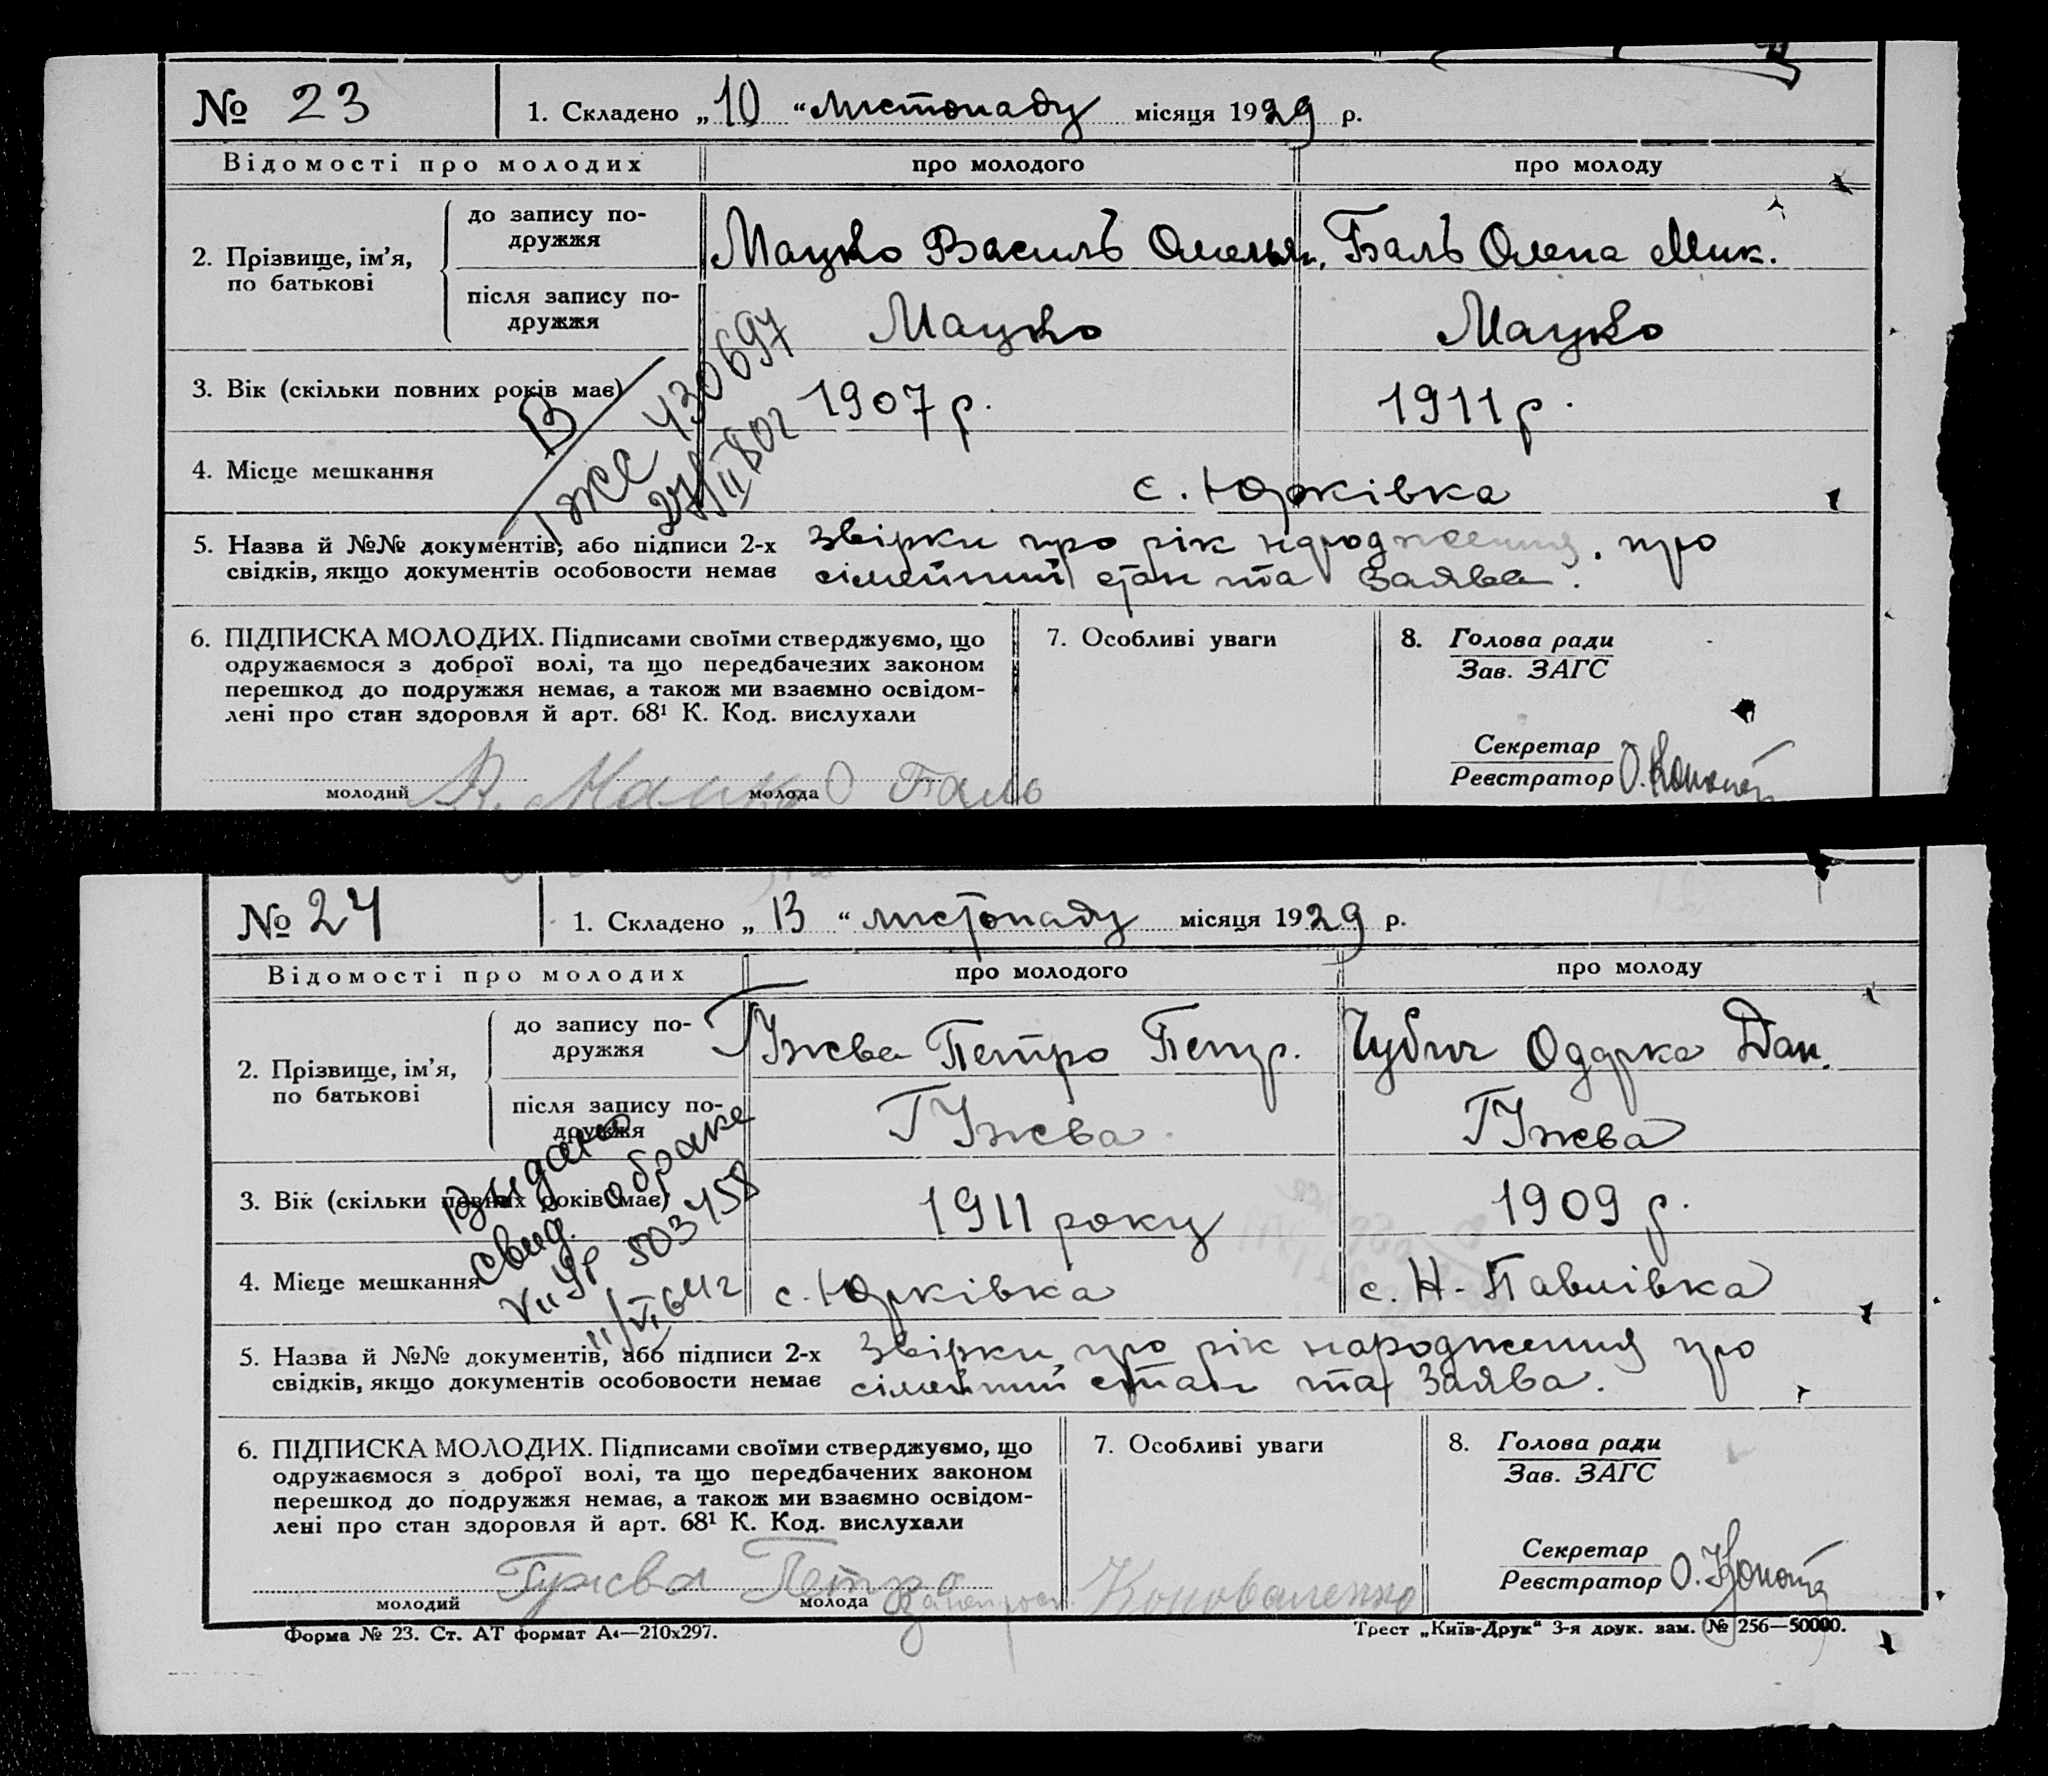 № 23
1. Складено „10“ листопаду місяця 1929 р.
Відомості про молодих
про молодого
про молоду
2. Прізвище, ім'я, по батькові
до запису по-
дружжя
Мацко Василь Омельян.
Баль Олена Мик.
після запису по-
дружжя
Мацко
Мацко
3. Вік (скільки повних років має)
1907 р.
1911 р.
4. Місце мешкання
с. Юрківка
В
430697
27/II 80г
5. Назва й №№ документів, або підписи 2-х
свідків, якщо документів особовости немає
Звірки про рік народження, про
сімейний стан та заява.
6. ПІДПИСКА МОЛОДИХ. Підписами своїми стверджуємо, що
одружаємося з доброї волі, та що передбачених законом
перешкод до подружжя немає, а також ми взаємно освідом-
лені про стан здоровля й арт. 68¹ К. Код. вислухали
молодий
В. Мацко
молода
О Баль
7. Особливі уваги
8. Голова ради
Зав. ЗАГС
Секретар
Реєстратор
№ 24
1. Складено „13“ листопаду місяця 1929 р.
Відомості про молодих
про молодого
про молоду
2. Прізвище, ім'я,
по батькові
до запису по-
дружжя
Гужва Петро Петр.
Чубич Одарка Дан.
після запису по-
дружжя
Гужва
Гужва
3. Вік (скільки повних років має)
1911 року
1909 р.
4. Місце мешкання
с. Юрківка
с. Н-Павлівка
Выдано
свид. о браке
503458
11/VI 64г
5. Назва й №№ документів, або підписи 2-х
свідків, якщо документів особовости немає
Звірки, про рік народження про
сімейний стан та заява.
6. ПІДПИСКА МОЛОДИХ. Підписами своїми стверджуємо, що
одружаємося з доброї волі, та що передбачених законом
перешкод до подружжя немає, а також ми взаємно освідом-
лені про стан здоровля й арт. 68¹ К. Код. вислухали
молодий
Гужва Петро
молода
Коноваленко
7. Особливі уваги
8. Голова ради
Зав. ЗАГС
Секретар
Реєстратор
Форма № 23. Ст. АТ формат А4—210x297.
Трест „Київ-Друк“ 3-я друк. зам. № 256—50000.